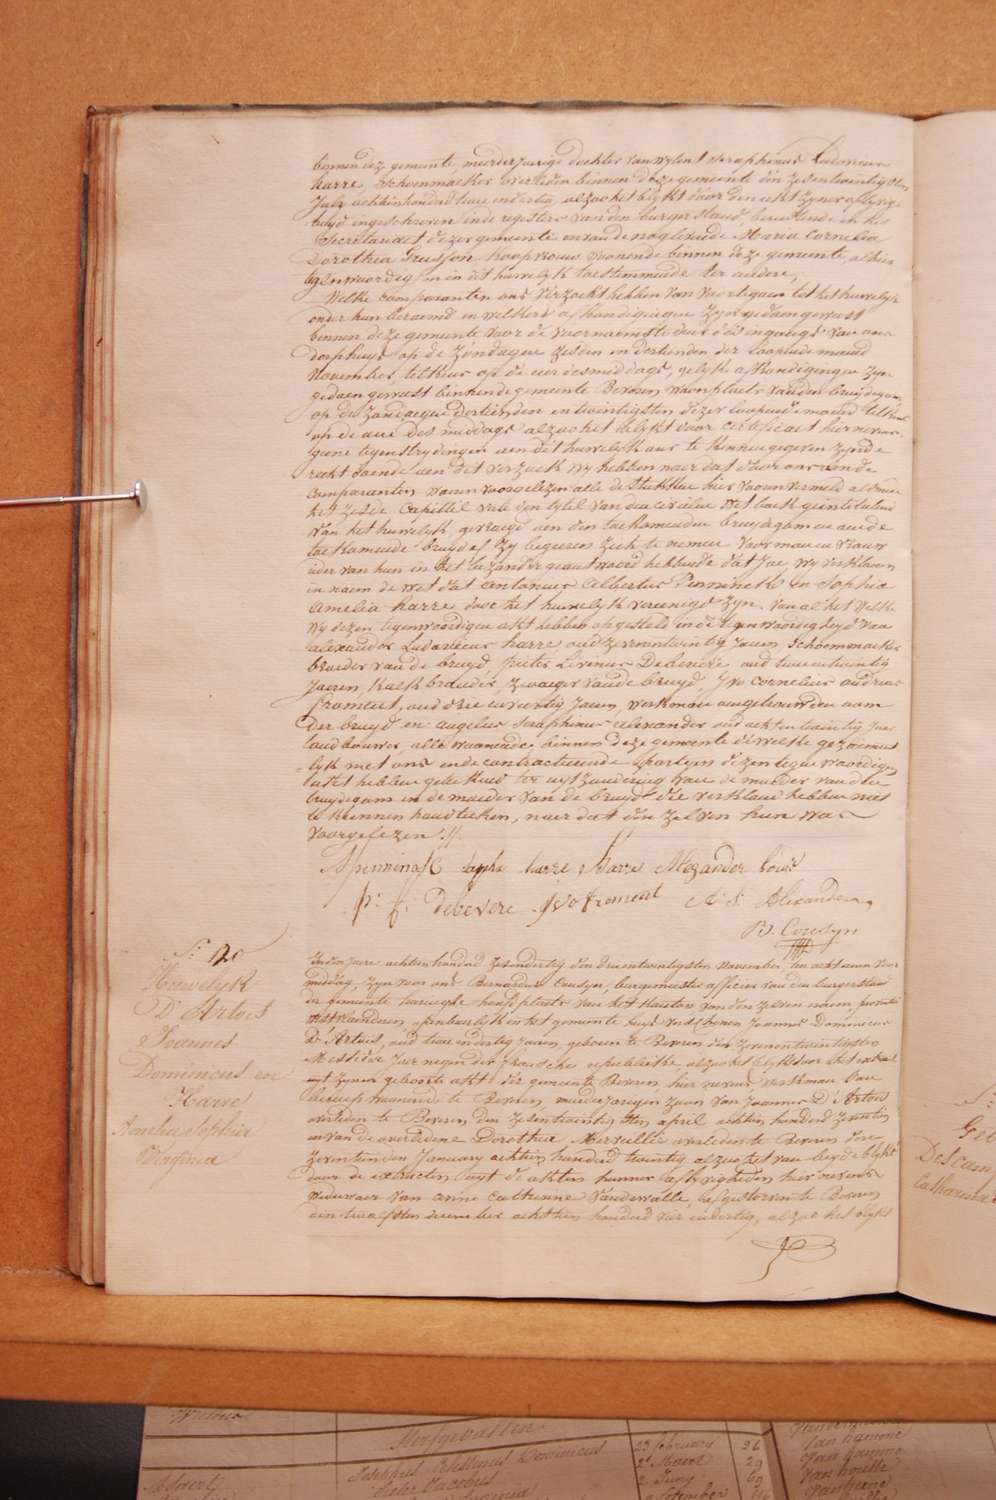 binnen deze gemeente, meerderjarige dochter van wylent Seraphinus Ludovicus
Harre, Schoenmaeker overleden binnen deze gemeente den zesentwintigsten
July achttienhondert twee endertig, alzoo het blykt door den akt zyner aflyvig-
heyd ingeschreven in de registers van den burgerstand berustende in het
Secretariaet dezer gemeente en van de nog levende Maria Cornelia
Dorothea koopvrouw woonende binnen deze gemeente, alhier
tegenwoordig en in dit huwelyk toestemmende ter andere,
Welke comparanten ons verzocht hebben van voortegaen tot het huwelyk
onder hun beraemd en welkers afkondigingen zyn gedaen geweest
binnen deze gemeente voor de voornaemste deur des ingangs van ons
Dorphuys op de zondagen zesden en dertienden der loopende maend
November, telkens op de uer des middags, gelyk afkondigingen zyn
gedaen geweest binnen de gemeente Beveren woonplaets van den bruydegom
op de zondagen dertienden en twintigsten dezer loopende maend telkens
op de uer des middags alzoo het blykt door certificaet hiernevens
geene tegenstrydingen aen dit huwelyk ons te kennen gegeven zynde
recht doende aen dit verzoek wy hebben naer dat door ons aen de
comparanten waeren voorgelezen alle de stukken hier vooren vermeld alsmede
het zesde Capittel van den tytel van den civielen Wet boek geintituleerd
Van het huwelyk, gevraegd aen den toekomenden bruydegom en aen de
toekomende bruyd of zy begeeren zich te nemen voor man en vrouw
ider van hun in het byzonder geantwoord hebbende dat Jae, wy verklaeren
in naem de wet dat Antonius Albertus Penninck en Sophia
Amelia Harre door het huwelyk vereenigd zyn. Van al het welke
wy dezen tegenwoordigen akt hebben opgesteld in de tegenwoordigheyd van
Alexander Ludovicus Harre oud zevenentwintig Jaeren, Schoenmaeker
broeder van de bruyd, Pieter Livinus Debevere oud twee en twintig
Jaeren, kalkbrander, zwaeger van de bruyd, Ivo Cornelius Andreas
Froment, oud drie en veertig Jaeren, werkman aengetrouwden oom
der bruyd en Angelus Seraphinus Alexander oud achtentwintig Jaer
landbouwer, alle woonende binnen deze gemeente dewelke gezaement-
lyk met ons en de contracteerende partyen dezen tegenwoordigen
akt hebben geteekend ter uytzondering van de moeder van den
bruydegom en de moeder van de bruyd die verklaert hebben niet
te kunnen handteeken, naer dat den zelven hun was
voorgelezen ./.
A penninck Sophi harre Harre Alexander louis
P: L: debevere Ivo froment A: S: Alexander
B. Couslyn
N: 120
Huwelyk
D'Artois
Joannes
Dominicus en
Harre
Amelia Sophia
Virginia
In den Jaere achttienhonderd zesendertig den drieentwintigsten November, ten acht uren voor
middag, zyn voor ons Bernardus Couslyn, burgemeester officier van den burgerstand
der gemeente hoofdplaets van het kanton van den zelven naem provintie
Westvlaenderen, openbaerlyk in het gemeente huys verschenen Joannes Dominicus
D'Artois, oud twee en dertig Jaeren, geboren te Beveren den zevenentwintigsten
Messidor Jaer negen der fransche republieke, alzoo het blykt door het extract
uyt zynen geboorte akt der gemeente Beveren hier nevens, werkman van
beroep woonende te Beveren, meerderjarigen zoon van Joannes D'Artois
overleden te Beveren den zesentwintigsten April achttien honderd zeventien
en van de overledene Dorothea Merveillie overleden te Beveren den
zeventienden January achttien honderd twintig alzoo het van beyde blykt
door de extracten uyt de akten hunner aflyvigheden hier nevens
weduwaer van Anne Catherine Vandewalle, afgestorven te Beveren
den twaelfsten december achttien honderd vier endertig, alzoo het blykt
Ge
Descam
Catharina
Josephus Dominicus
23 february 26
2 Maert 29
2 Juny 60
September
Van hamme
Van hamme
Van houtte